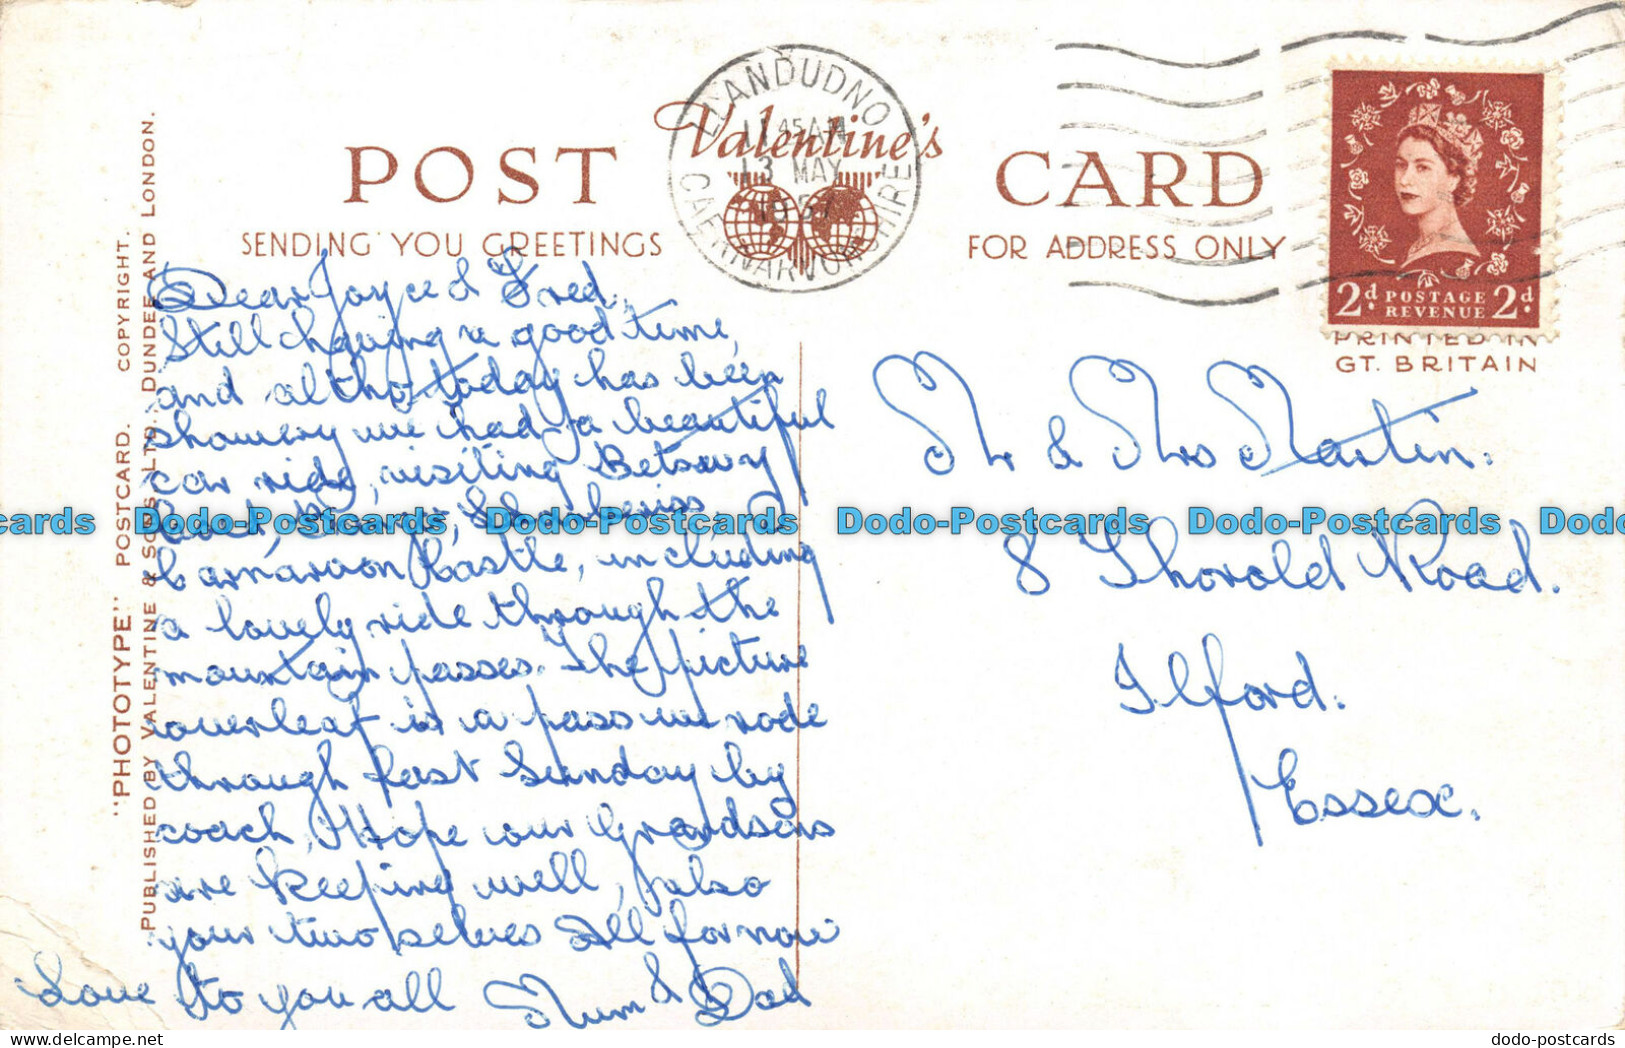 LLANDUDNO
11 45 AM
13 MAY
1957
CAERNARVONSHIRE
POST Valentine's CARD
SENDING YOU GREETINGS
FOR ADDRESS ONLY
2d. POSTAGE REVENUE 2d.
PRINTED IN
GT. BRITAIN
"PHOTOTYPE" POSTCARD. COPYRIGHT.
PUBLISHED BY VALENTINE & SONS LTD. DUNDEE AND LONDON.
Dear Joyce & Fred,
Still having a good time,
and altho today has been
showery we had a beautiful
car ride, visiting Betswy
Coed, Llanberiss, &
Carnarvon Castle, including
a lovely ride through the
mountain passes. The picture
overleaf is a pass we rode
through last Sunday by
coach, Hope our Grandsons
are keeping well, also
your two selves All for now
Love to you all Mum & Dad
Mr & Mrs Martin.
8 Thorold Road.
Ilford.
Essex.
Dodo-Postcards Dodo-Postcards Dodo-Postcards Dodo-Postcards
dodo-postcards